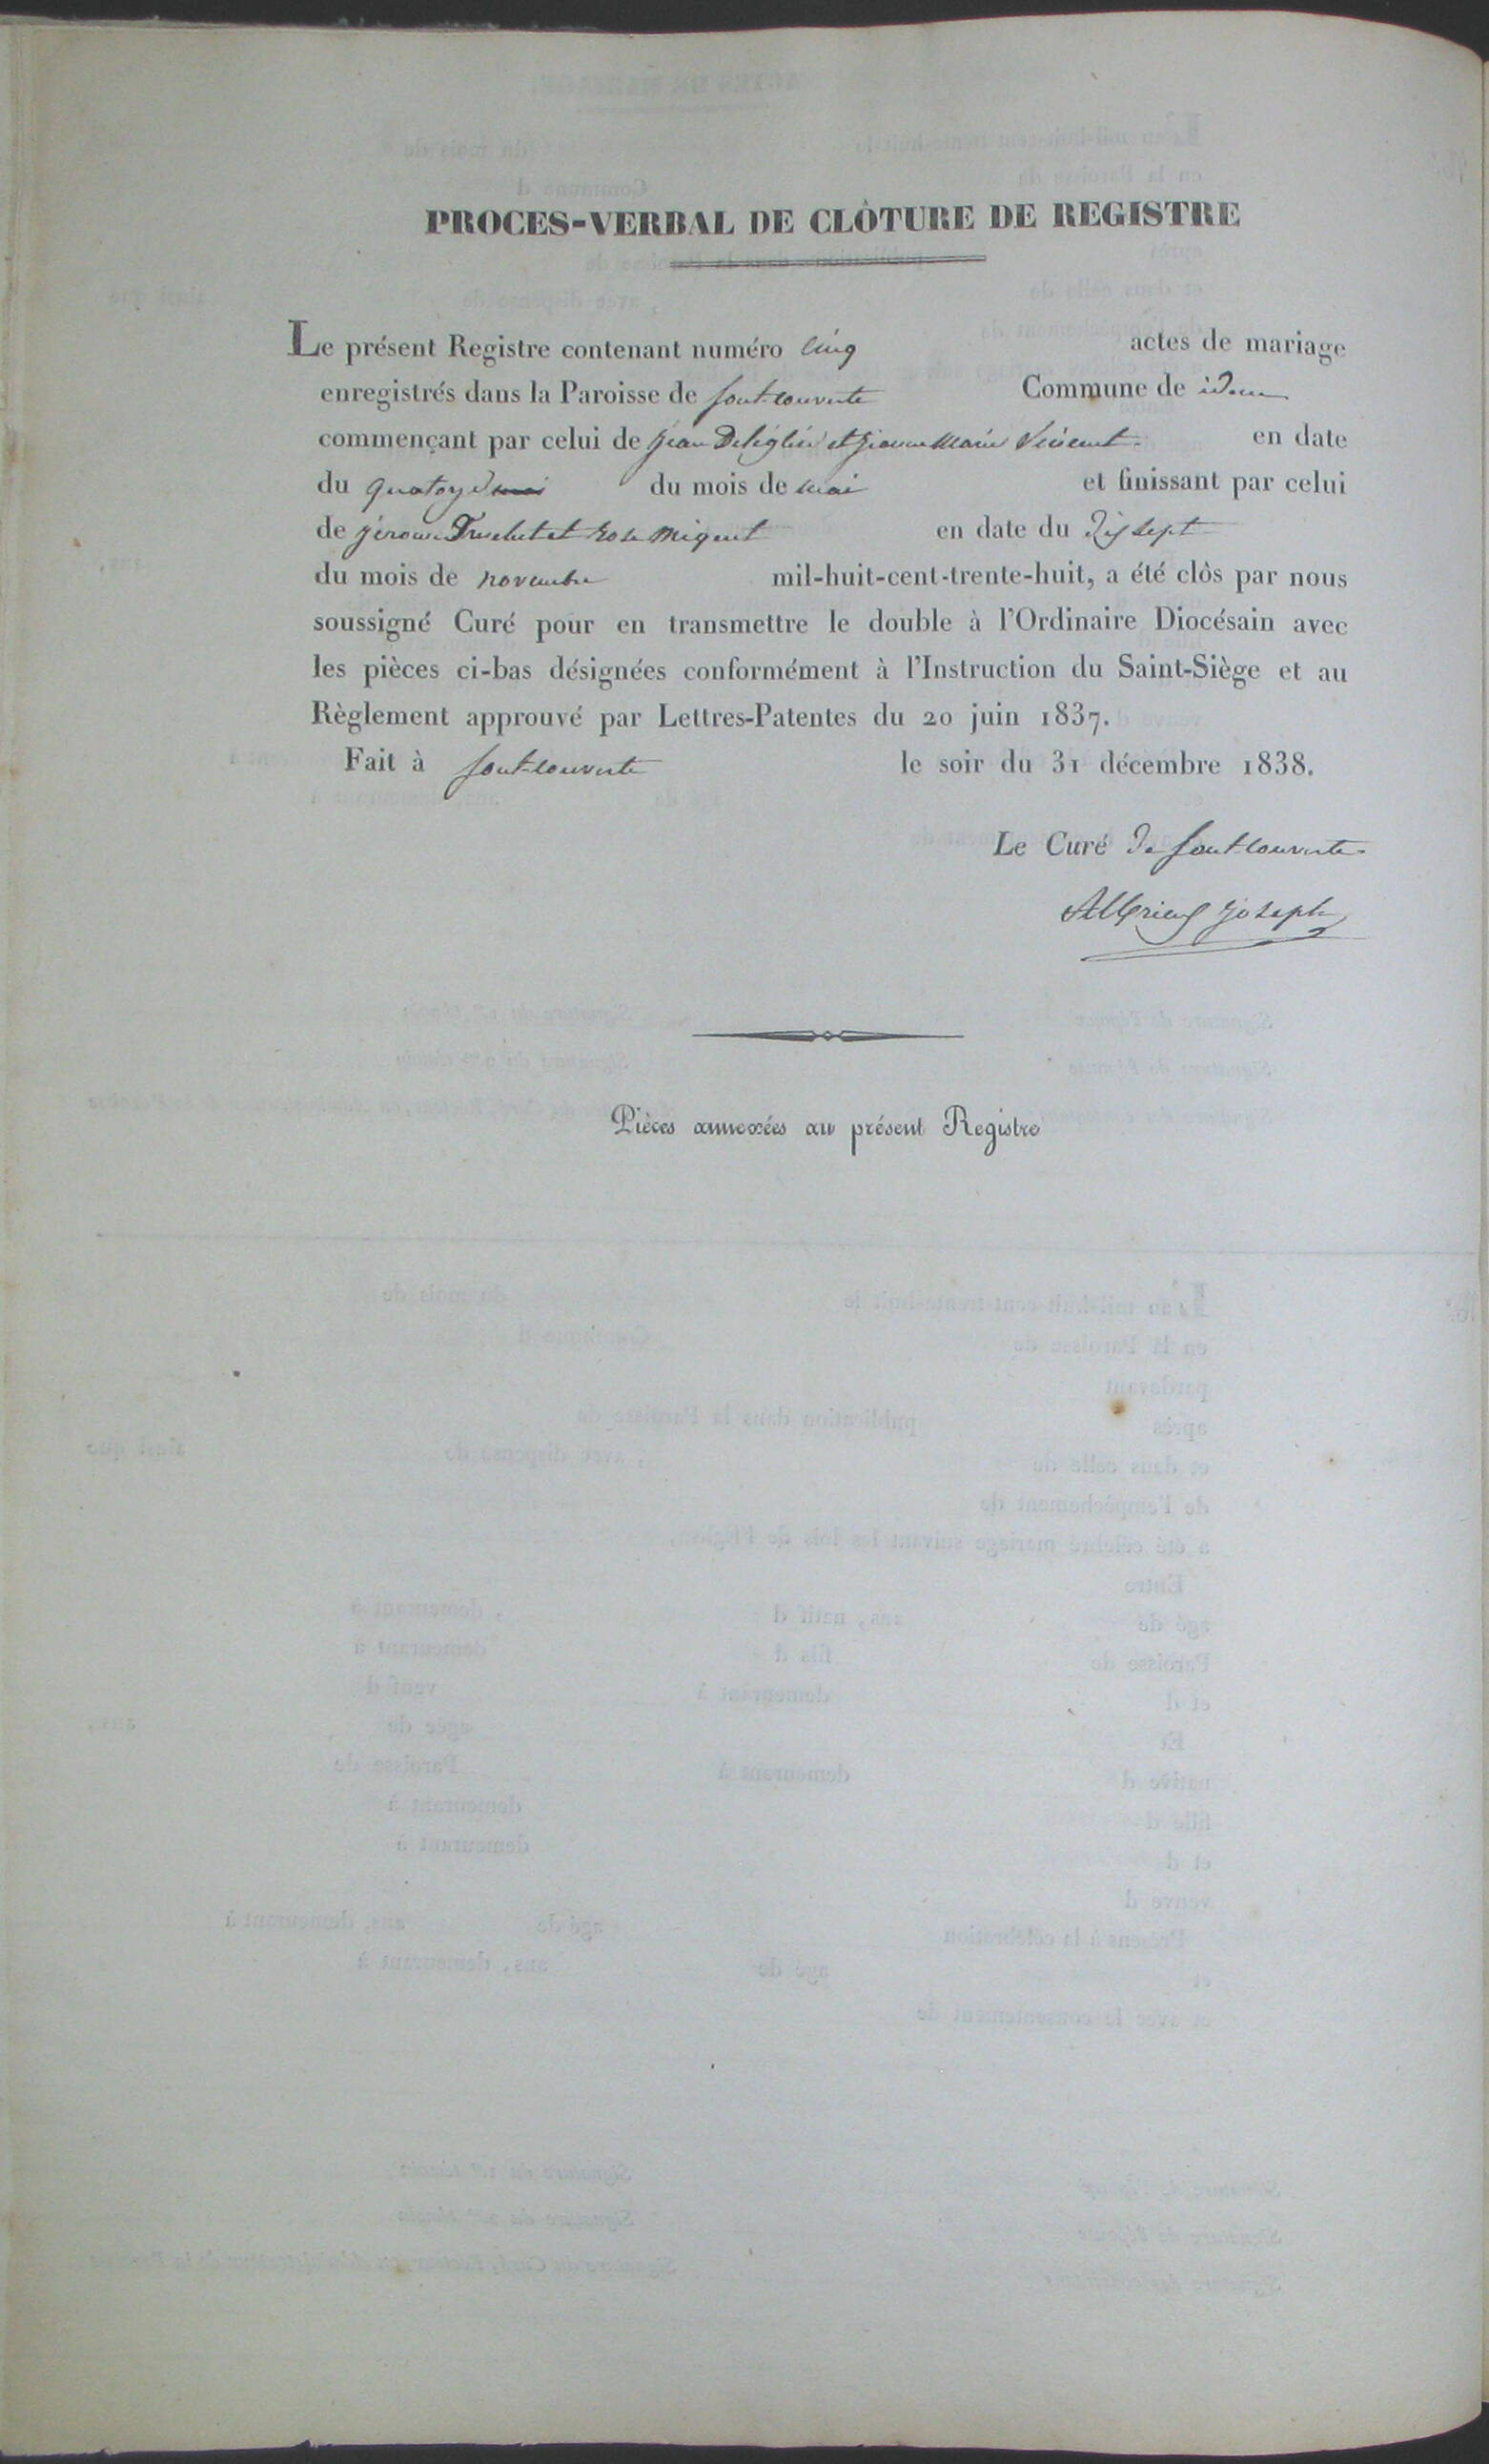 PROCES-VERBAL DE CLÔTURE DE REGISTRE
Le présent Registre contenant numéro cinq actes de mariage
enregistrés dans la Paroisse de fontcouverte Commune de idem
commençant par celui de jean Deléglise et jeanne Marie Vincent en date
du quatorze mai du mois de mai et finissant par celui
de jérome Truchet et rose en date du dix sept
du mois de novembre mil-huit-cent-trente-huit, a été clôs par nous
soussigné Curé pour en transmettre le double à l'Ordinaire Diocésain avec
les pièces ci-bas désignées conformément à l'Instruction du Saint-Siège et au
Règlement approuvé par Lettres-Patentes du 20 juin 1837.
Fait à fontcouverte le soir du 31 décembre 1838.
Le Curé de fontcouverte
Albrieux joseph
Pièces annexées au présent Registre